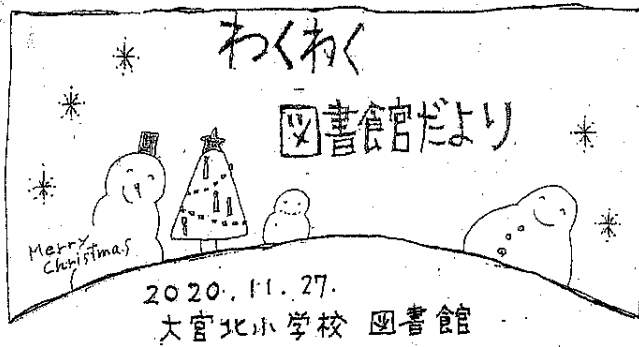 わくわく
図書館だより
Merry
Christmas
2020.11.27.
大宮北小学校 図書館